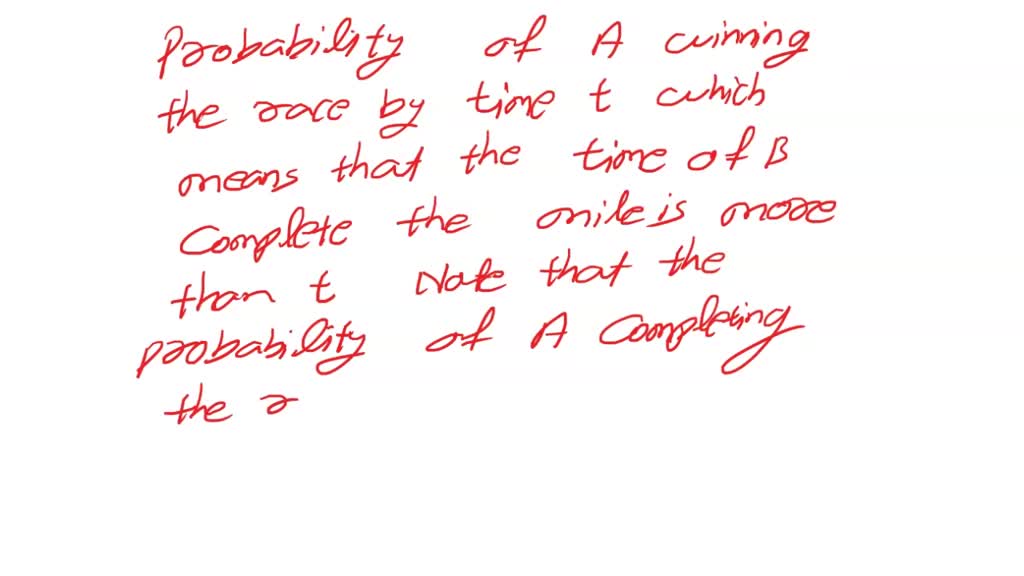 Probability of A winning
the race by time t which
means that the time of B
Complete the mile is more
than t Note that the
probability of A Completing
the r